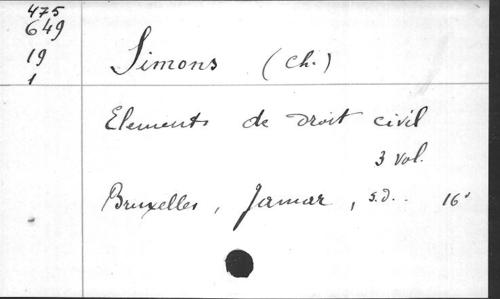 475
649
19
1
Simons (Ch.)
Elements de droit civil
3 vol.
Bruxelles, Jamar, s.d. 16°